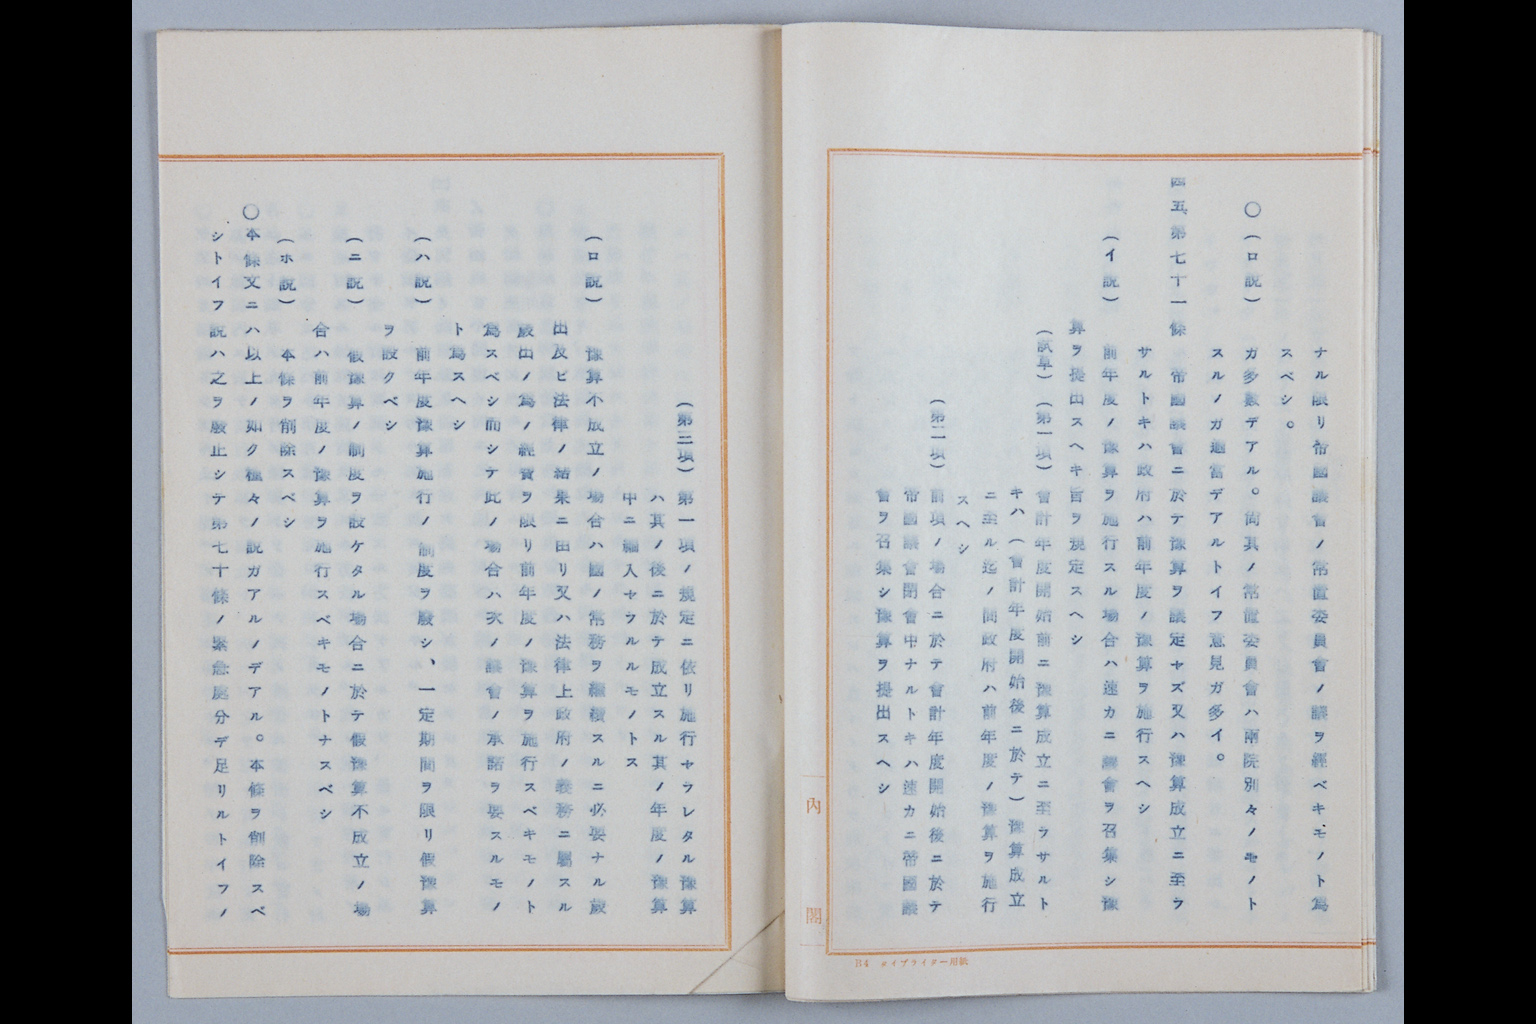 ナル限リ帝國議會ノ常置委員會ノ議ヲ經ベキモノト爲
スベシ。
○(ロ説)ガ多數デアル。尙其ノ常置委員會ハ兩院別々ノモノト
スルノガ適當デアルトイフ意見ガ多イ。
四五第七十一條 帝國議會ニ於テ豫算ヲ議定セズ又ハ豫算成立ニ至ラ
サルトキハ政府ハ前年度ノ豫算ヲ施行スヘシ
(イ説) 前年度ノ豫算ヲ施行スル場合ハ速カニ議會ヲ召集シ豫
算ヲ提出スヘキ旨ヲ規定スヘシ
(試草)(第一項)會計年度開始前ニ豫算成立ニ至ラサルト
キハ(會計年度開始後ニ於テ)豫算成立
ニ至ル迄ノ間政府ハ前年度ノ豫算ヲ施行
スヘシ
(第二項)前項ノ場合ニ於テ會計年度開始後ニ於テ
帝國議會閉會中ナルトキハ速カニ帝國議
會ヲ召集シ豫算ヲ提出スヘシ
内閣
B4 タイプライター用紙
(第三項)第一項ノ規定ニ依リ施行セラレタル豫算
ハ其ノ後ニ於テ成立スル其ノ年度ノ豫算
中ニ編入セラルルモノトス
(ロ説) 豫算不成立ノ場合ハ國ノ常務ヲ繼續スルニ必要ナル歲
出及ビ法律ノ結果ニ由リ又ハ法律上政府ノ義務ニ屬スル
歲出ノ爲ノ經費ヲ限リ前年度ノ豫算ヲ施行スベキモノト
爲スベシ而シテ此ノ場合ハ次ノ議會ノ承諾ヲ要スルモノ
ト爲スヘシ
(ハ説) 前年度豫算施行ノ制度ヲ廢シ、一定期間ヲ限リ假豫算
ヲ設クベシ
(ニ説) 假豫算ノ制度ヲ設ケタル場合ニ於テ假豫算不成立ノ場
合ハ前年度ノ豫算ヲ施行スベキモノトナスベシ
(ホ説) 本條ヲ削除スベシ
○本條文ニハ以上ノ如ク種々ノ説ガアルノデアル。本條ヲ削除スベ
シトイフ説ハ之ヲ廢止シテ第七十條ノ緊急處分デ足リルトイフノ